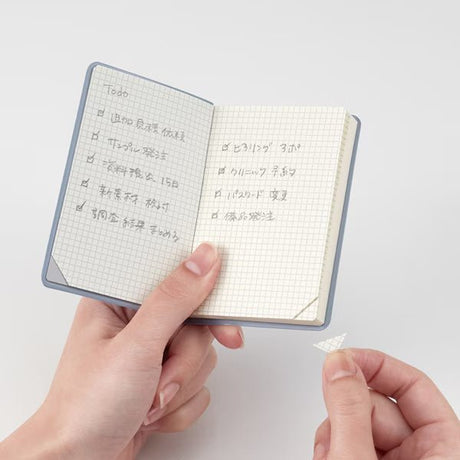 Todo
☑ 追加見積依頼
☑ サンプル発注
☑ 資料提出 15日
☑ 新素材 検討
☑ 調査結果まとめる
☑ ヒアリング
☑ クリニック 予約
☑ パスワード 変更
☑ 備品発注